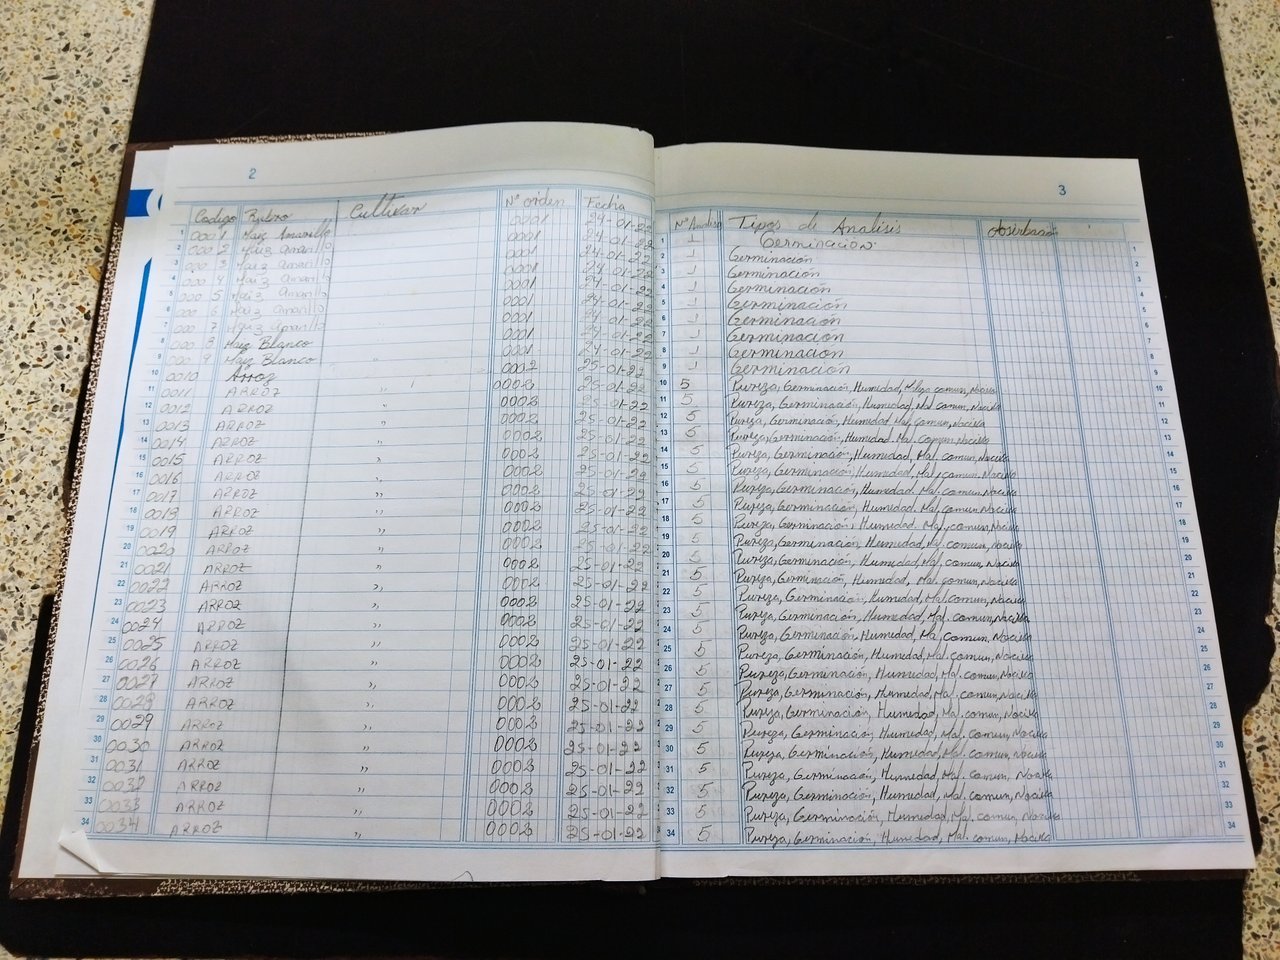 2
Codigo Rubro Cultivar N° orden Fecha
1 0001 Maiz Amarillo 0001 24-01-22
2 0002 Maiz Amarillo 0001 24-01-22
3 0003 Maiz Amarillo 0001 24-01-22
4 0004 Maiz Amarillo 0001 24-01-22
5 0005 Maiz Amarillo 0001 24-01-22
6 0006 Maiz Amarillo 0001 24-01-22
7 0007 Maiz Amarillo 0001 24-01-22
8 0008 Maiz Blanco 0001 24-01-22
9 0009 Maiz Blanco 0001 24-01-22
10 0010 Arroz 0002 25-01-22
11 0011 ARROZ ,, 0002 25-01-22
12 0012 ARROZ ,, 0002 25-01-22
13 0013 ARROZ ,, 0002 25-01-22
14 0014 ARROZ ,, 0002 25-01-22
15 0015 ARROZ ,, 0002 25-01-22
16 0016 ARROZ ,, 0002 25-01-22
17 0017 ARROZ ,, 0002 25-01-22
18 0018 ARROZ ,, 0002 25-01-22
19 0019 ARROZ ,, 0002 25-01-22
20 0020 ARROZ ,, 0002 25-01-22
21 0021 ARROZ ,, 0002 25-01-22
22 0022 ARROZ ,, 0002 25-01-22
23 0023 ARROZ ,, 0002 25-01-22
24 0024 ARROZ ,, 0002 25-01-22
25 0025 ARROZ ,, 0002 25-01-22
26 0026 ARROZ ,, 0002 25-01-22
27 0027 ARROZ ,, 0002 25-01-22
28 0028 ARROZ ,, 0002 25-01-22
29 0029 ARROZ ,, 0002 25-01-22
30 0030 ARROZ ,, 0002 25-01-22
31 0031 ARROZ ,, 0002 25-01-22
32 0032 ARROZ ,, 0002 25-01-22
33 0033 ARROZ ,, 0002 25-01-22
34 0034 ARROZ ,, 0002 25-01-22
3
N° Analisis Tipos de Analisis
1 1 Germinación 1
2 1 Germinación 2
3 1 Germinación 3
4 1 Germinación 4
5 1 Germinación 5
6 1 Germinación 6
7 1 Germinación 7
8 1 Germinacion 8
9 1 Germinación 9
10 5 Pureza, Germinación, Humidad, Maleza comun, Nociva 10
11 5 Pureza, Germinación, Humedad, Mal. comun, Nociva 11
12 5 Pureza, Germinación, Humedad, Mal. comun, Nociva 12
13 5 Pureza, Germinación, Humedad, Mal. comun, Nociva 13
14 5 Pureza, Germinación, Humedad, Mal. comun, Nociva 14
15 5 Pureza, Germinación, Humedad, Mal. comun, Nociva 15
16 5 Pureza, Germinación, Humedad, Mal. comun, Nociva 16
17 5 Pureza, Germinación, Humedad, Mal. comun, Nociva 17
18 5 Pureza, Germinación, Humedad, Mal. comun, Nociva 18
19 5 Pureza, Germinación, Humedad, Mal. comun, Nociva 19
20 5 Pureza, Germinación, Humedad, Mal. comun, Nociva 20
21 5 Pureza, Germinación, Humedad, Mal. comun, Nociva 21
22 5 Pureza, Germinación, Humedad, Mal. comun, Nociva 22
23 5 Pureza, Germinación, Humedad, Mal. comun, Nociva 23
24 5 Pureza, Germinación, Humedad, Mal. comun, Nociva 24
25 5 Pureza, Germinación, Humedad, Mal. comun, Nociva 25
26 5 Pureza, Germinación, Humedad, Mal. comun, Nociva 26
27 5 Pureza, Germinación, Humedad, Mal. comun, Nociva 27
28 5 Pureza, Germinación, Humedad, Mal. comun, Nociva 28
29 5 Pureza, Germinación, Humedad, Mal. comun, Nociva 29
30 5 Pureza, Germinación, Humedad, Mal. comun, Nociva 30
31 5 Pureza, Germinación, Humedad, Mal. comun, Nociva 31
32 5 Pureza, Germinación, Humedad, Mal. comun, Nociva 32
33 5 Pureza, Germinación, Humedad, Mal. comun, Nociva 33
34 5 Pureza, Germinación, Humedad, Mal. comun, Nociva 34